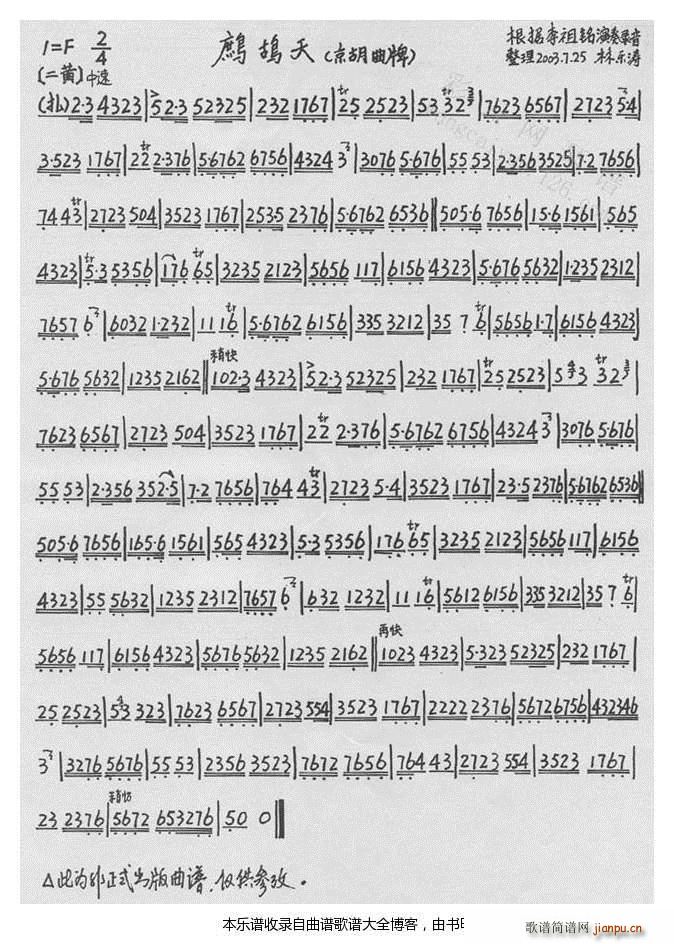 1=F 2/4 鹧鸪天(京胡曲牌) 根据李祖铭演奏录音
(二黄)中速 整理2003.7.25 林乐涛
(扎)2·3 4323|52·3 52325|232 1767|25 2523|53 32|7623 6567|2723 5·4|
3·523 1767|22 2·376|5·6762 6756|4324 3|3076 5·676|55 53|2·356 3525|7·2 7656|
744 3|2723 504|3523 1767|2535 2376|5·6762 6536‖505·6 7656|15·6 1561|565
4323|5·3 5356|176 65|3235 2123|5656 117|6156 4323|5·676 5632|1·235 2312|
7657 6|6032 1·232|11 16|5·6762 6156|335 3212|35 7 6|5656 1·7|6156 4323|
稍快
5·676 5632|1235 2162‖102·3 4323|52·3 52325|232 1767|25 2523|5 3 32|
7623 6567|2723 504|3523 1767|22 2·376|5·6762 6756|4324 3|3076 5·676|
55 53|2·356 352·5|7·2 7656|764 43|2723 5·4|3523 1767|23·5 2376|5·6762 6536‖
505·6 7656|165·6 1561|565 4323|5·3 5356|176 65|3235 2123|5656 117|6156
4323|55 5632|1235 2312|7657 6|632 1232|11 16|5612 6156|335 3212|35 7 6|
再快
5656 117|6156 4323|5676 5632|1235 2162‖1023 4323|5·323 52325|232 1767|
25 2523|53 323|7623 6567|2723 554|3523 1767|2222 2376|5672 6756|432346
3|3276 5676|55 53|2356 3523|7672 7656|764 43|2723 554|3523 1767|
稍慢
23 2376|5672 653276|50 0‖
△此为非正式出版曲谱,仅供参改。
本乐谱收录自曲谱歌谱大全博客，由书
歌谱简谱网
jianpu.cn